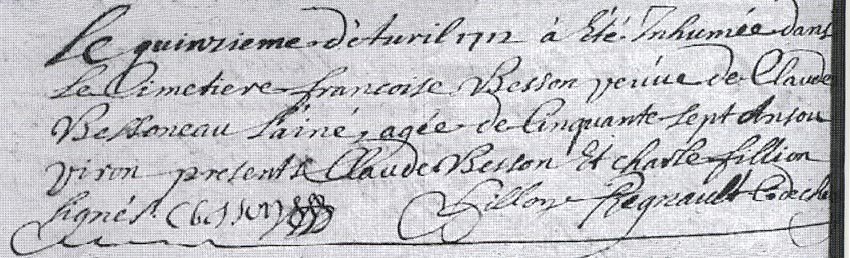 Le quinzieme d'avril 1712 à Eté Inhumée dans
le Cimetiere francoise Besson veriüe de Claude
Bessoneau l'ainé, agée de Cinquante sept Ansou
viron presents Claude Besson Et charle fillion
signés. CBesson fillion Regnault